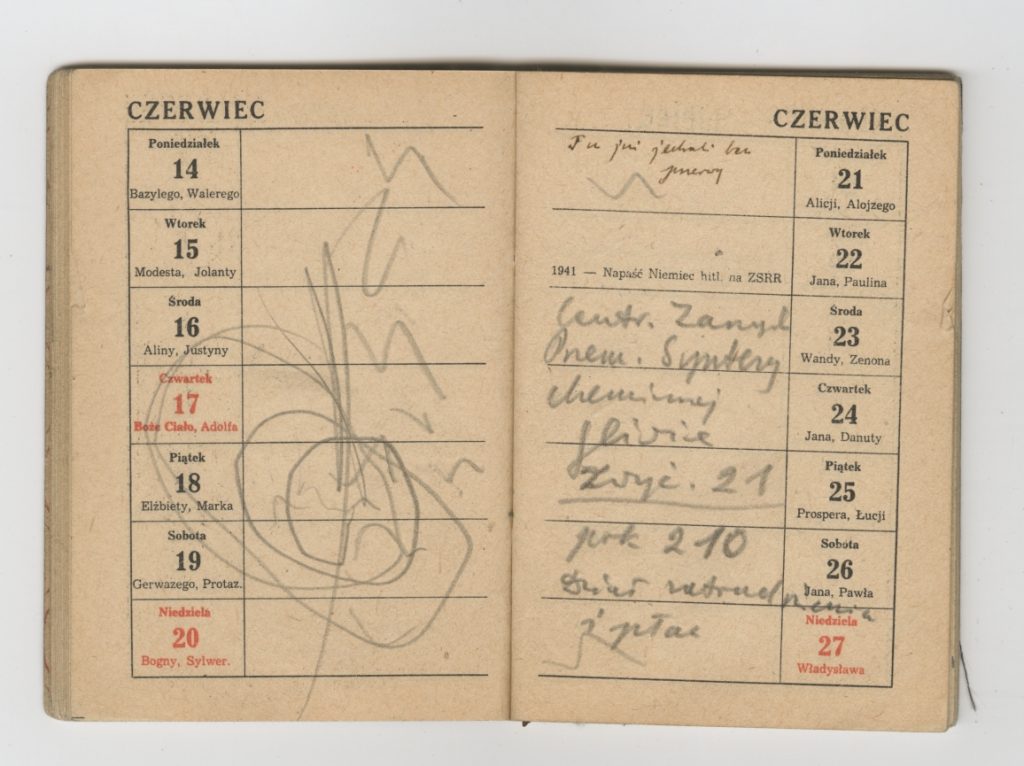 CZERWIEC
Poniedziałek
14
Bazylego, Walerego
Wtorek
15
Modesta, Jolanty
Środa
16
Aliny, Justyny
Czwartek
17
Boże Ciało, Adolfa
Piątek
18
Elżbiety, Marka
Sobota
19
Gerwazego, Protaz.
Niedziela
20
Bogny, Sylwer.
CZERWIEC
Tu już jechali bez
przerwy
Poniedziałek
21
Alicji, Alojzego
Wtorek
22
Jana, Paulina
1941 — Napaść Niemiec hitl. na ZSRR
Środa
23
Wandy, Zenona
Czwartek
24
Jana, Danuty
Piątek
25
Prospera, Łucji
Sobota
26
Jana, Pawła
Niedziela
27
Władysława
Centr. Zarząd
Przem. Syntezy
chemicznej
Gliwice
Zwyc. 21
pok 210
Dział zatrudnienia
i płac